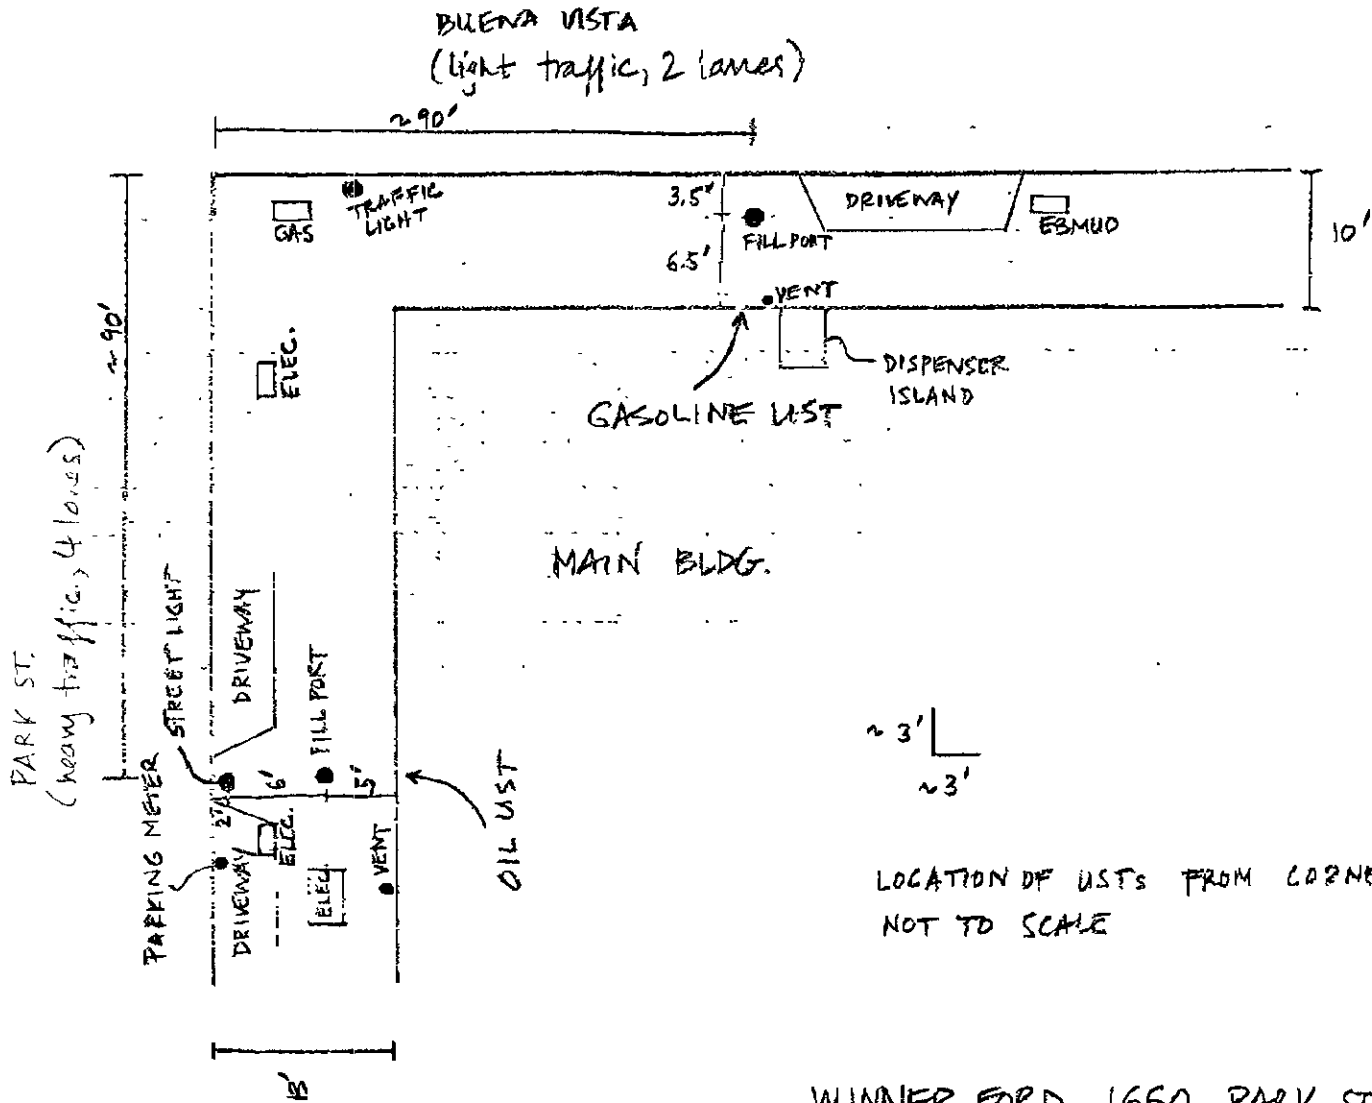 BUENA VISTA
(light traffic, 2 lanes)
~90'
TRAFFIC
LIGHT
GAS
3.5'
6.5'
FILL PORT
DRIVEWAY
EBMUD
10'
VENT
DISPENSER
ISLAND
GASOLINE UST
~90'
ELEC.
PARK ST.
(heavy traffic, 4 lanes)
MAIN BLDG.
STREET LIGHT
DRIVEWAY
FILL PORT
2'
6'
5'
OIL UST
PARKING METER
DRIVEWAY
ELEC.
ELEC.
VENT
~3'
~3'
LOCATION OF USTs FROM CORNE
NOT TO SCALE
WINNER FORD, 1650 PARK ST